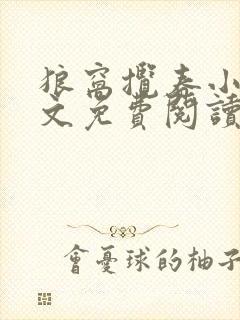 狼窩攬春小
文免費閱讀
會憂球的柚子